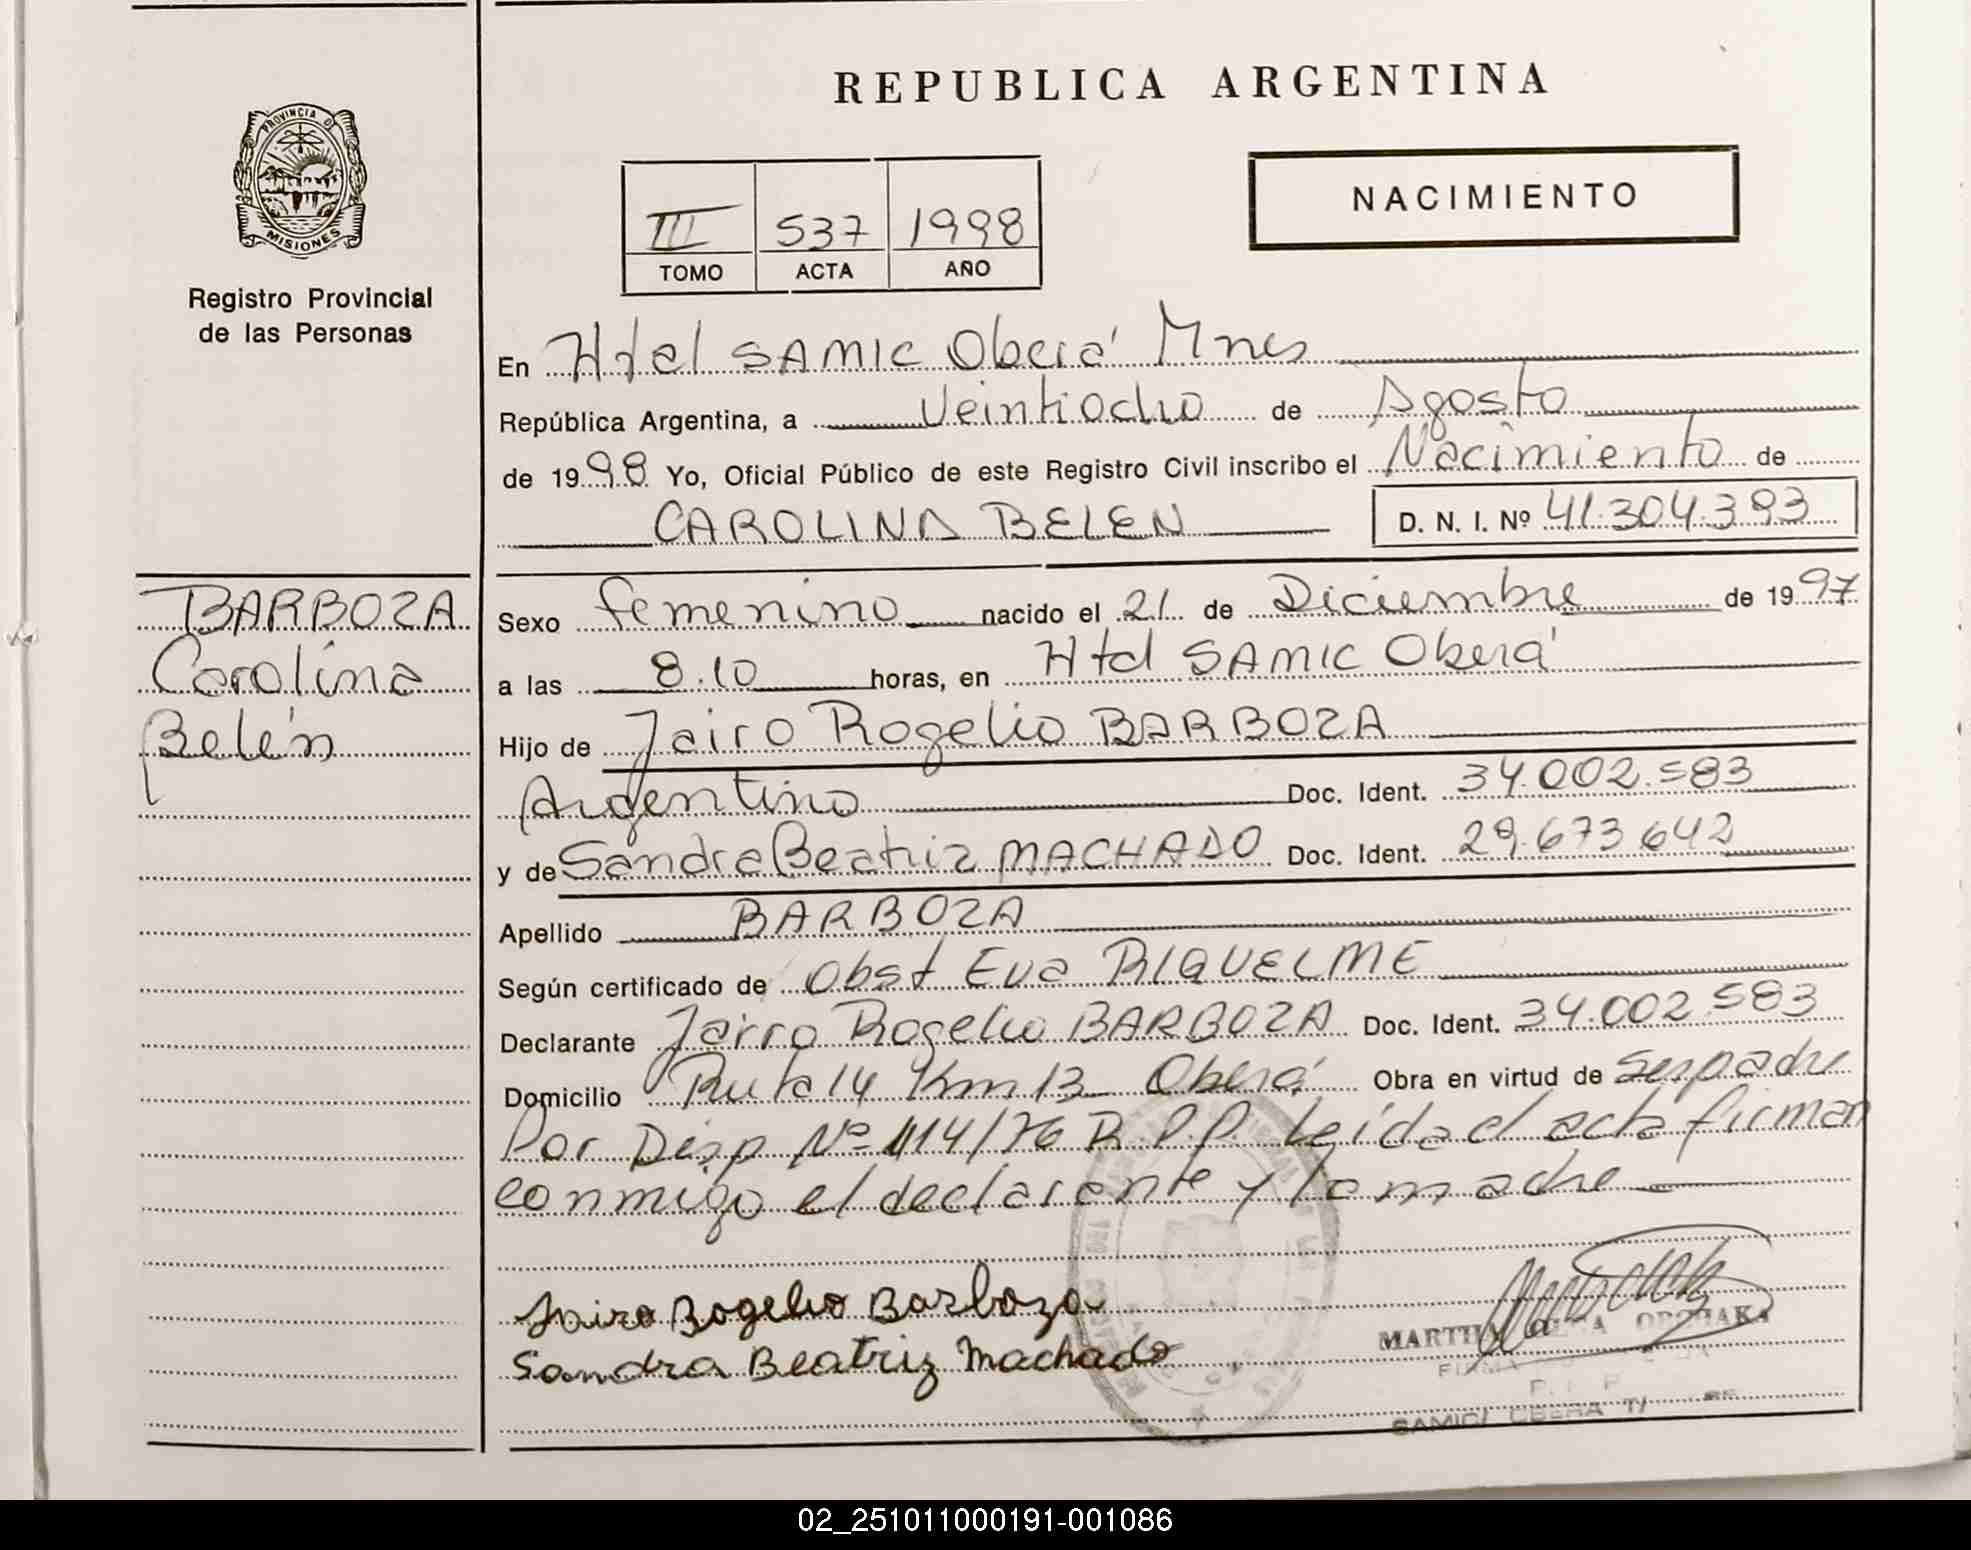 REPUBLICA ARGENTINA
PROVINCIA DE
MISIONES
Registro Provincial
de las Personas
III 537 1998
TOMO ACTA AÑO
NACIMIENTO
En Htal SAMIC Oberá Mnes
República Argentina, a Veintiocho de Agosto
de 1998 Yo, Oficial Público de este Registro Civil inscribo el Nacimiento de
CAROLINA BELEN D. N. I. Nº 41.304.393
BARBOZA
Carolina
Belén
Sexo femenino nacido el 21 de Diciembre de 1997
a las 8.10 horas, en Htal SAMIC Oberá
Hijo de Jairo Rogelio BARBOZA
Argentino Doc. Ident. 34.002.583
y de Sandra Beatriz MACHADO Doc. Ident. 29.673.642
Apellido BARBOZA
Según certificado de Obst Eva RIQUELME
Declarante Jairo Rogelio BARBOZA Doc. Ident. 34.002.583
Domicilio Ruta 14 Km 13 Oberá Obra en virtud de ser padre
Por Disp Nº 114/76 R.P.P. Leída el acta firman
conmigo el declarante y la madre
Jairo Rogelio Barboza
Sandra Beatriz Machado
MARTHA
SAMIC/ OBERA
02_251011000191-001086